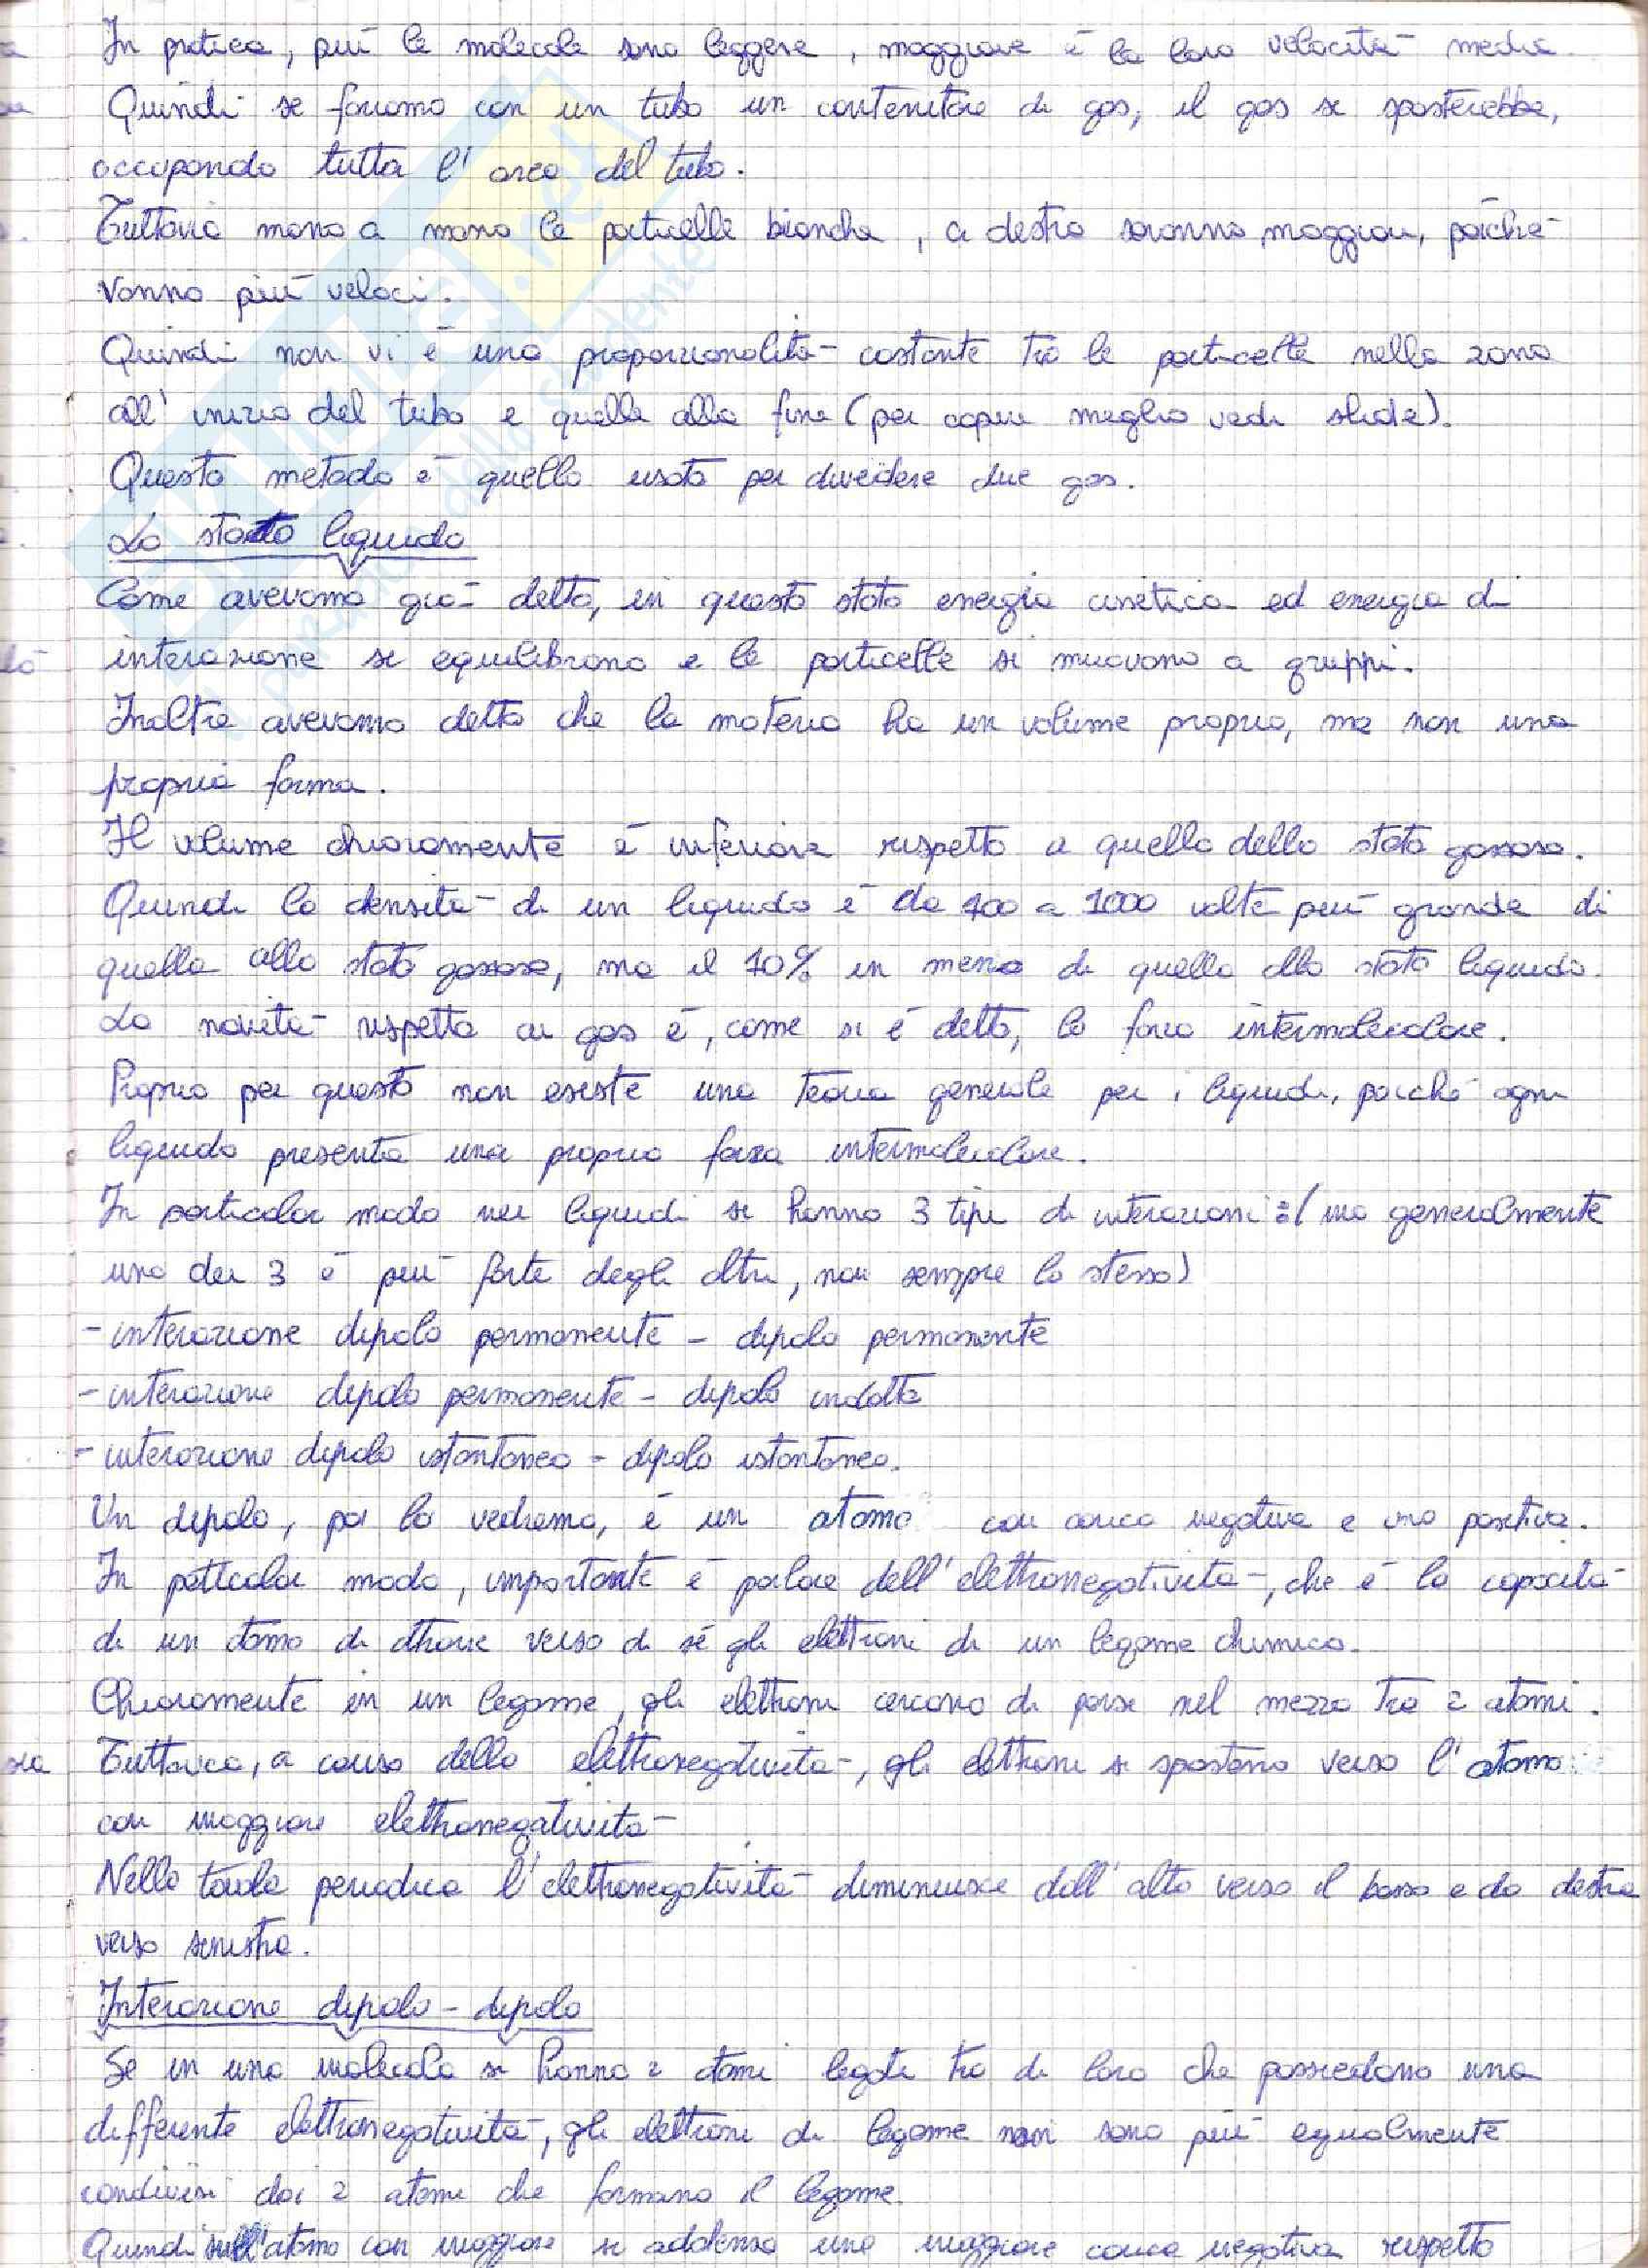 In pratica, più le molecole sono leggere, maggiore è la loro velocità media.
Quindi se foriamo con un tubo un contenitore di gas, il gas si sposterebbe,
occupando tutta l'area del tubo.
Tuttavia mano a mano le particelle bianche, a destra saranno maggiori, poichè
vanno più veloci.
Quindi non vi è una proporzionalità costante tra le particelle nella zona
all'inizio del tubo e quelle alla fine (per capire meglio vedi slide).
Questo metodo è quello usato per dividere due gas.
Lo stato liquido
Come avevamo già detto, in questo stato energia cinetica ed energia di
interazione si equilibrano e le particelle si muovono a gruppi.
Inoltre avevamo detto che la materia ha un volume proprio, ma non una
propria forma.
Il volume chiaramente è inferiore rispetto a quello dello stato gassoso.
Quindi la densità di un liquido è da 100 a 1000 volte più grande di
quella allo stato gassoso, ma il 10% in meno di quella allo stato liquido.
La novità rispetto ai gas è, come si è detto, la forza intermolecolare.
Proprio per questo non esiste una teoria generale per i liquidi, poichè ogni
liquido presenta una propria forza intermolecolare.
In particolar modo nei liquidi si hanno 3 tipi di interazioni: (ma generalmente
uno dei 3 è più forte degli altri, non sempre lo stesso)
- interazione dipolo permanente - dipolo permanente
- interazione dipolo permanente - dipolo indotto
- interazione dipolo istantaneo - dipolo istantaneo.
Un dipolo, poi lo vedremo, è un atomo con carica negativa e una positiva.
In particolar modo, importante è parlare dell'elettronegatività, che è la capacità
di un atomo di attrarre verso di sé gli elettroni di un legame chimico.
Chiaramente in un legame, gli elettroni cercano di porsi nel mezzo tra 2 atomi.
Tuttavia, a causa della elettronegatività, gli elettroni si spostano verso l'atomo
con maggiore elettronegatività
Nella tavola periodica l'elettronegatività diminuisce dall'alto verso il basso e da destra
verso sinistra.
Interazione dipolo - dipolo
Se in una molecola si hanno 2 atomi legati tra di loro che possiedono una
differente elettronegatività, gli elettroni di legame non sono più egualmente
condivisi dai 2 atomi che formano il legame.
Quindi sull'atomo con maggiore si addensa una maggiore carica negativa rispetto